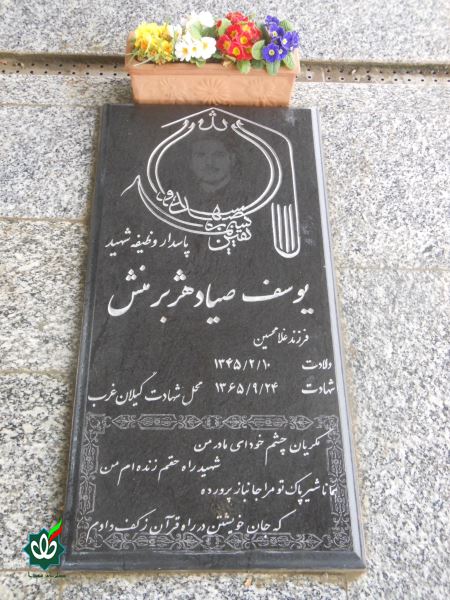 پاسدار وظیفه شهید
یوسف صیاد هژبر منش
فرزند غلامحسین
ولادت ۱۳۴۵/۲/۱۰
شهادت ۱۳۶۵/۹/۲۴ محل شهادت گیلان غرب
مکریان چشم خود ای مادر من
شهید راه حقم زنده ام من
همانا شیر پاک تو مرا جانباز پرورده
که جان خویشتن در راه قرآن ز کف دادم